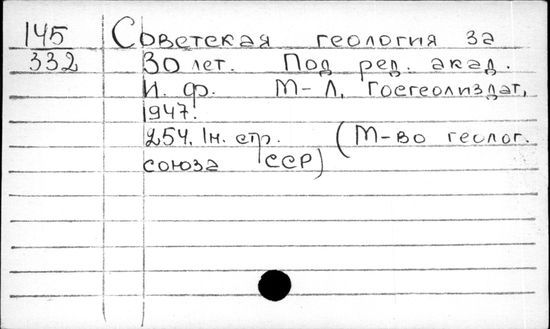 145
332
Советская геология за
30 лет. Под ред. акад.
И. Ф. М-Л, Госгеолиздат,
1947.
254, 1н. стр. (М-во геолог.
союза ССР)